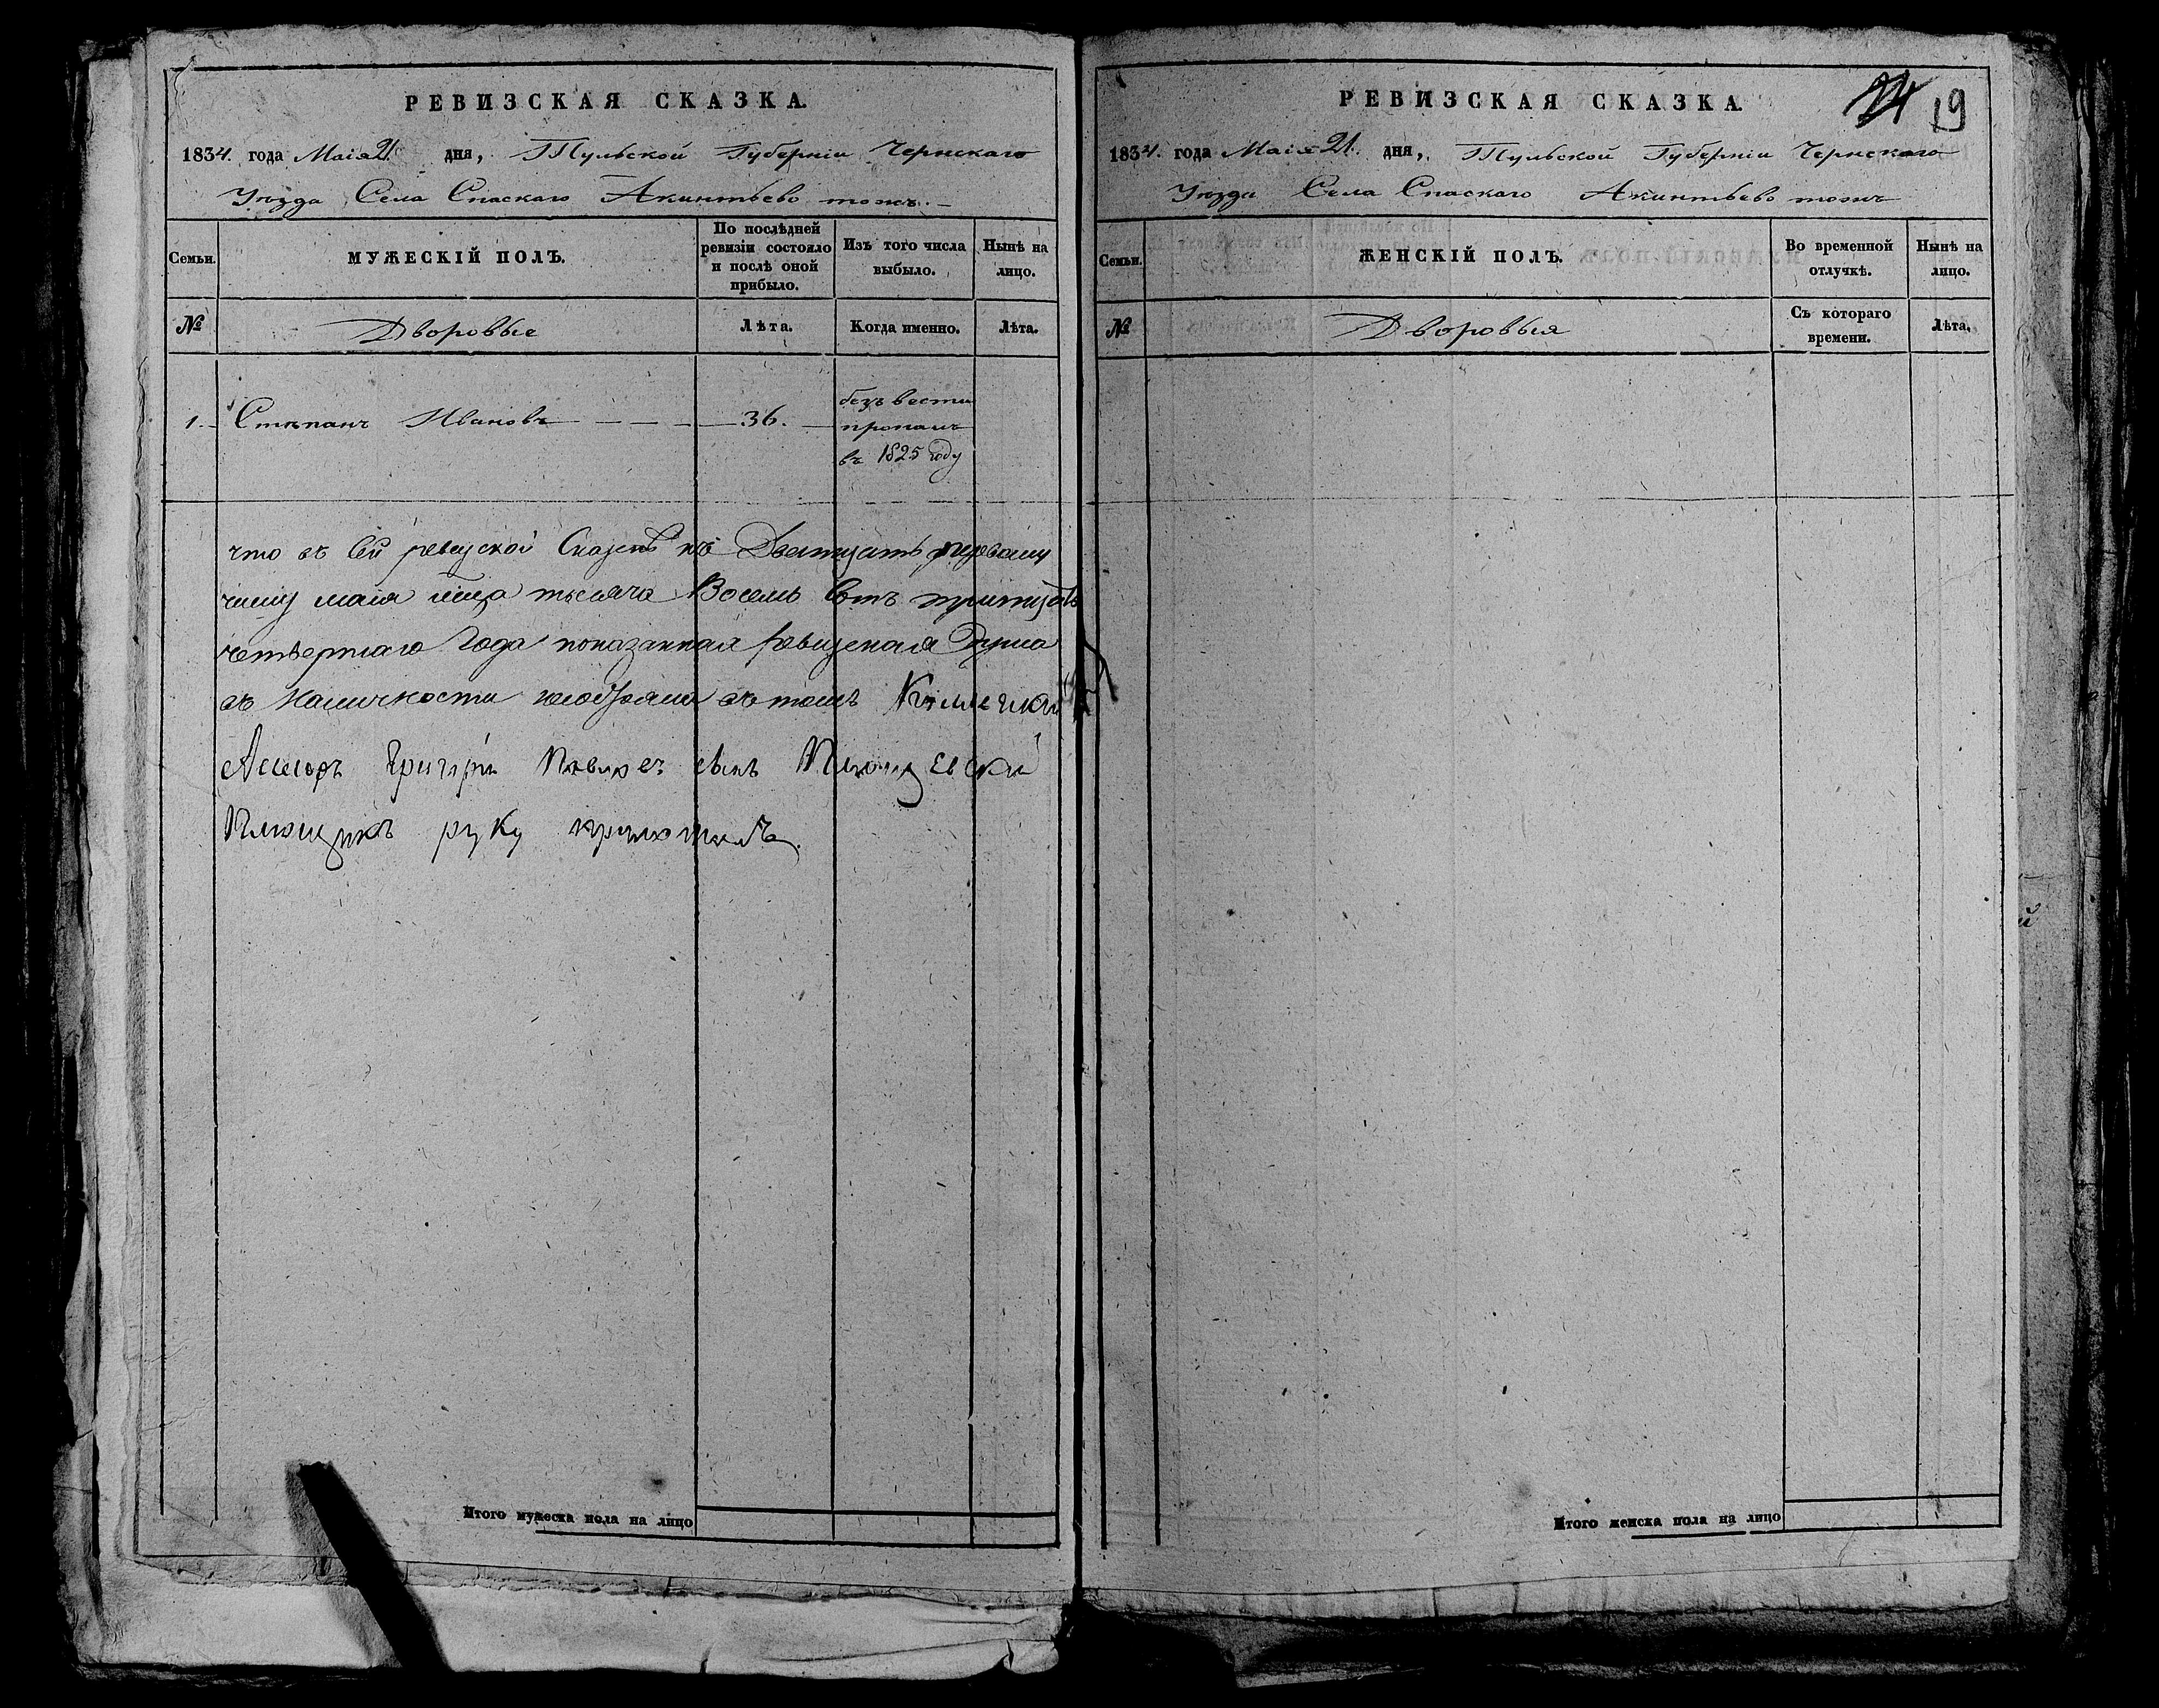 РЕВИЗСКАЯ СКАЗКА.
1834. года Маія 21. дня, Тульской Губерніи Чернскаго
Уѣзда Села Спаскаго Акинтьево тожъ.
Семьи.
МУЖЕСКІЙ ПОЛЪ.
По послѣдней ревизіи состояло и послѣ оной прибыло.
Изъ того числа выбыло.
Нынѣ на лицо.
№
Дворовые
Лѣта.
Когда именно.
Лѣта.
1. Степанъ Ивановъ 36.
безъ вести
пропалъ
въ 1825 году
что въ сей ревизской Сказкѣ къ Дватцать первому
числу маія тысяча Восемь Сотъ тритцать
четвертаго Года показанная ревизская Душа
въ наличности въ томъ
Григорій сынъ
руку приложилъ.
Итого мужеска пола на лицо
РЕВИЗСКАЯ СКАЗКА.
19
1834. года Маія 21. дня, Тульской Губерніи Чернскаго
Уѣзда Села Спаскаго Акинтьево тожъ
Семьи.
ЖЕНСКІЙ ПОЛЪ.
Во временной отлучкѣ.
Нынѣ на лицо.
№
Дворовыя
Съ котораго времени.
Лѣта.
Итого женска пола на лицо